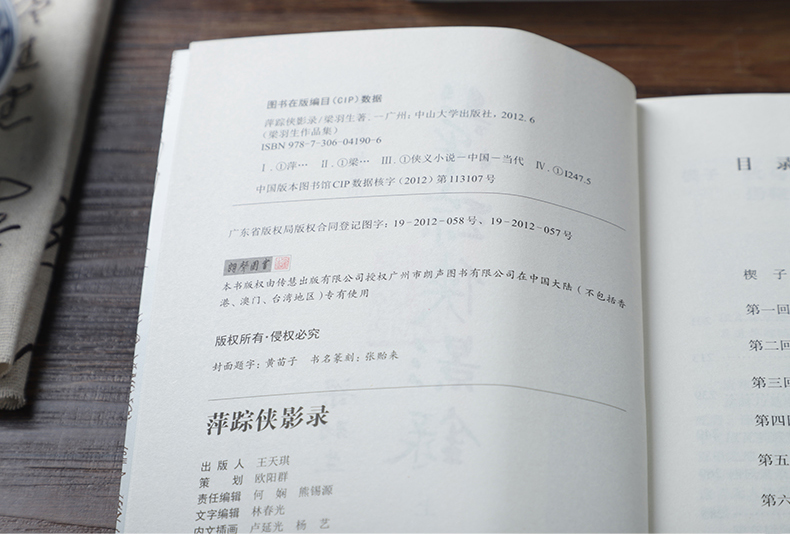 图书在版编目(CIP)数据
萍踪侠影录/梁羽生著.—广州:中山大学出版社,2012.6
(梁羽生作品集)
ISBN 978-7-306-04190-6
Ⅰ.①萍… Ⅱ.①梁… Ⅲ.①侠义小说-中国-当代 Ⅳ.①I247.5
中国版本图书馆CIP数据核字(2012)第113107号
广东省版权局版权合同登记图字:19-2012-058号、19-2012-057号
朗声图书
本书版权由传慧出版有限公司授权广州市朗声图书有限公司在中国大陆(不包括香
港、澳门、台湾地区)专有使用
版权所有·侵权必究
封面题字:黄苗子 书名篆刻:张贻来
萍踪侠影录
出版人 王天琪
策划 欧阳群
责任编辑 何娴 熊锡源
文字编辑 林春光
内文插画 卢延光 杨艺
目录
楔子
第一回
第二回
第三回
第四回
第五
第六